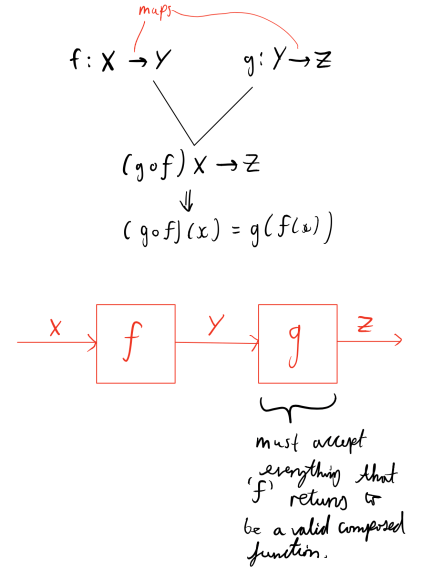 maps
f: X → Y g: Y → Z
(g∘f) X → Z
⇓
(g∘f)(x) = g(f(x))
X f Y g Z
must accept
everything that
'f' returns to
be a valid composed
function.